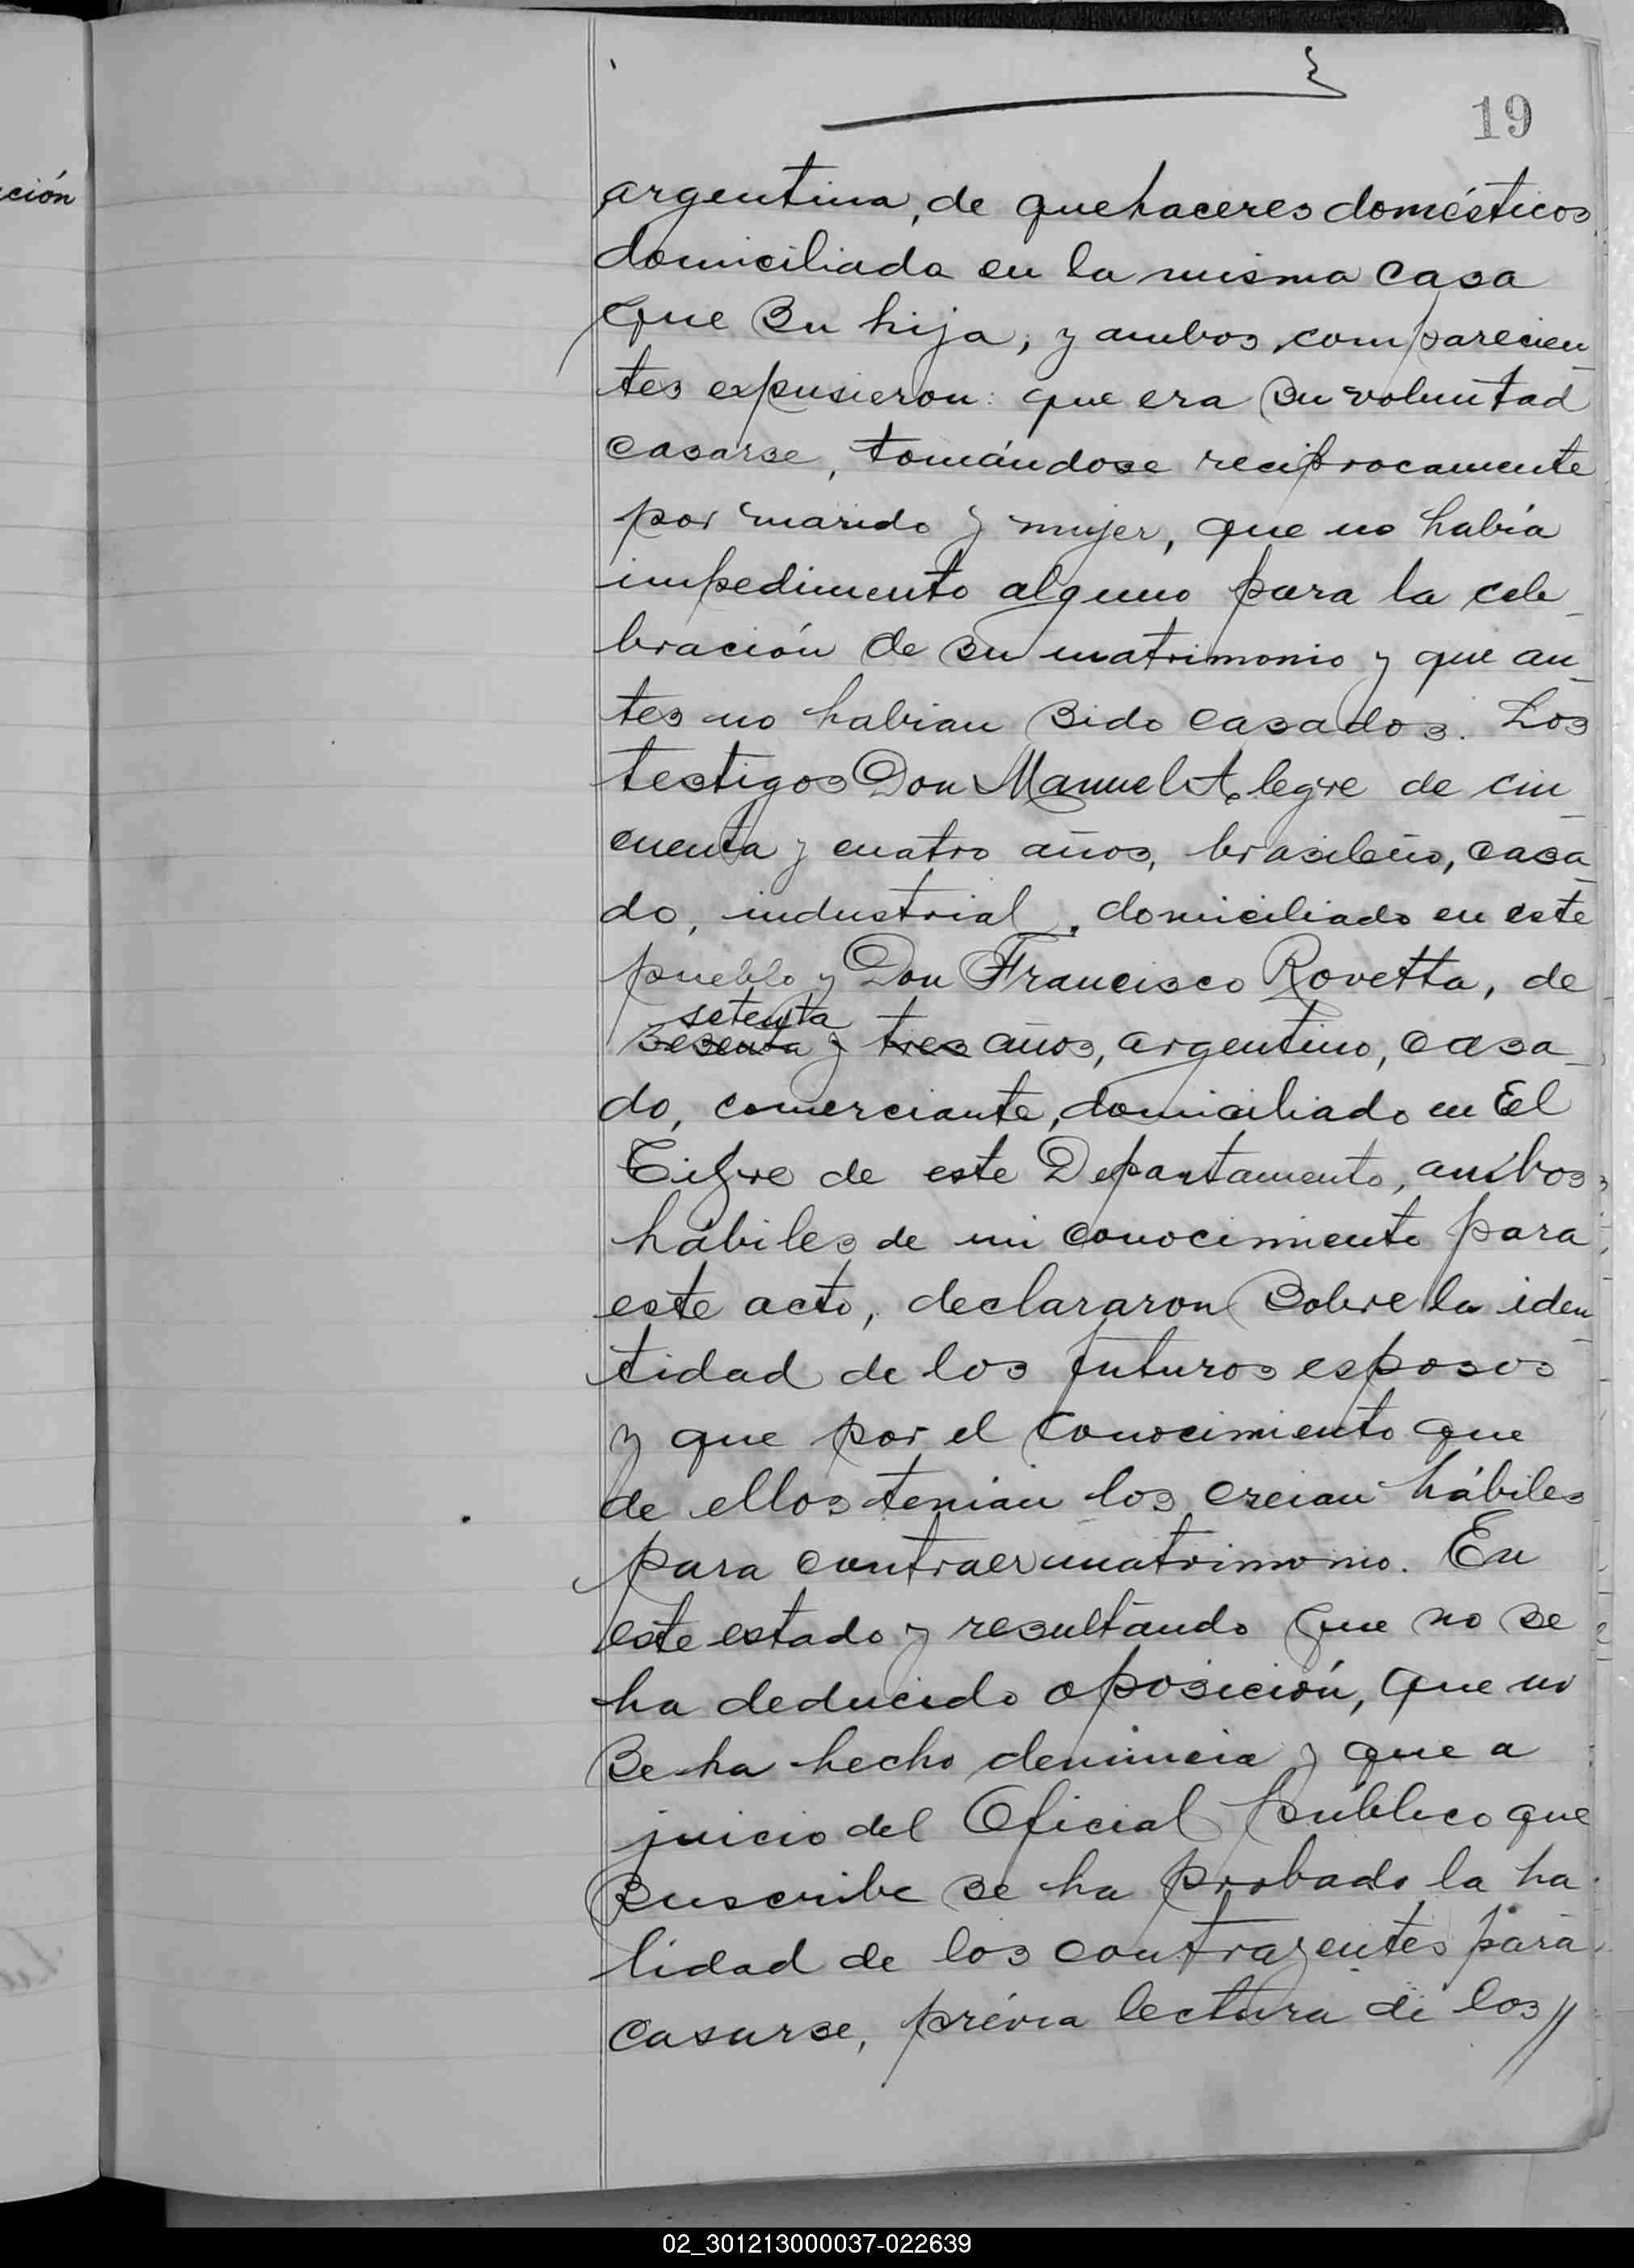 19
ción
argentina, de quehaceres domésticos,
domiciliada en la misma casa
que su hija; y ambos comparecien
tes expusieron: que era su voluntad
casarse, tomándose recíprocamente
por marido y mujer, que no había
impedimento alguno para la cele
bración de su matrimonio y que an
tes no habian sido casados. Los
testigos Don Manuel Alegre de cin
cuenta y cuatro años, brasileño, casa
do, industrial, domiciliado en este
pueblo y Don Francisco Rovetta, de
setenta
sesenta y tres años, argentino, casa
do, comerciante, domiciliado en El
Tigre de este Departamento, ambos
hábiles de mi conocimiento para
este acto, declararon sobre la iden
tidad de los futuros esposos
y que por el conocimiento que
de ellos tenían los creian hábiles
para contraer matrimonio. En
este estado y resultando que no se
ha deducido oposición, que no
se ha hecho denuncia y que a
juicio del Oficial público que
suscribe se ha probado la ha
lidad de los contrayentes para
casarse, prévia lectura de los//
02_301213000037-022639